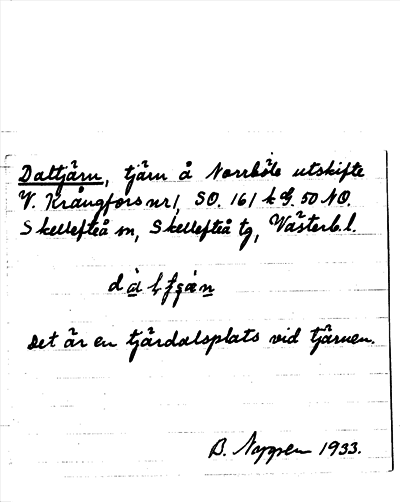 Daltjärn, tjärn å Norrböle utskifte
V. Krångfors nr 1, SO. 161 k G. 50 NO.
Skellefteå sn, Skellefteå tg, Västerb. l.
Det är en tjärdalsplats vid tjärnen.
B. 1933.